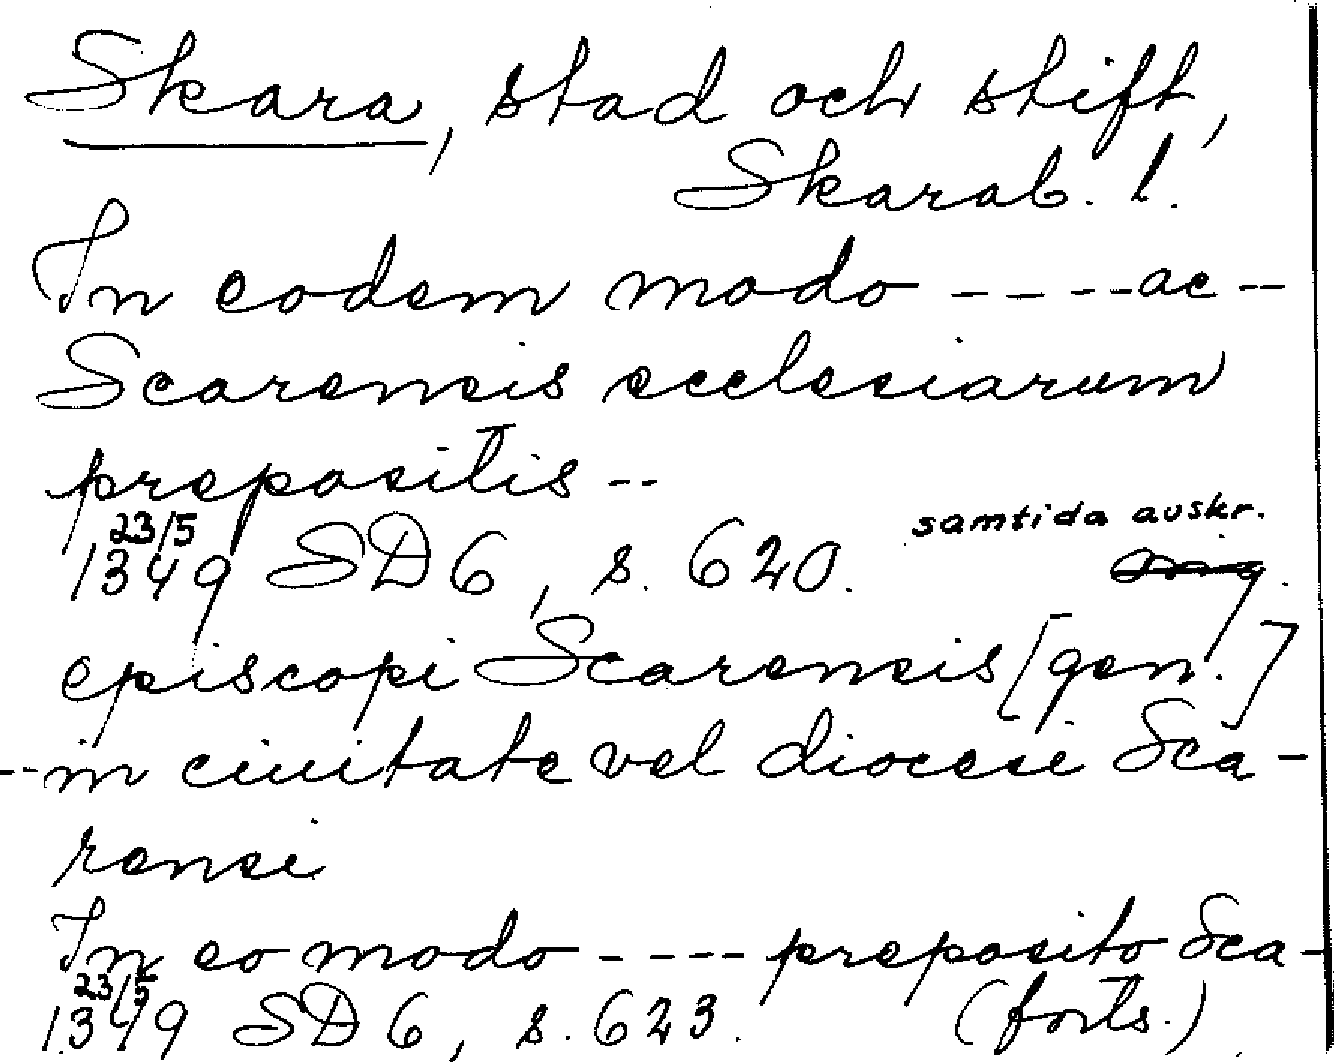 Skara, stad och stift,
Skarab. l.
In eodem modo - - - - ac - -
Scarensis ecclesiarum
prepositis - -
samtida avskr.
23/5
1349 SD 6, s. 620.
episcopi Scarensis [gen.]
- - in ciuitate vel diocesi Sca-
rensi
In eo modo - - - - preposito Sca-
23/5
1349 SD 6, s. 623. (forts.)